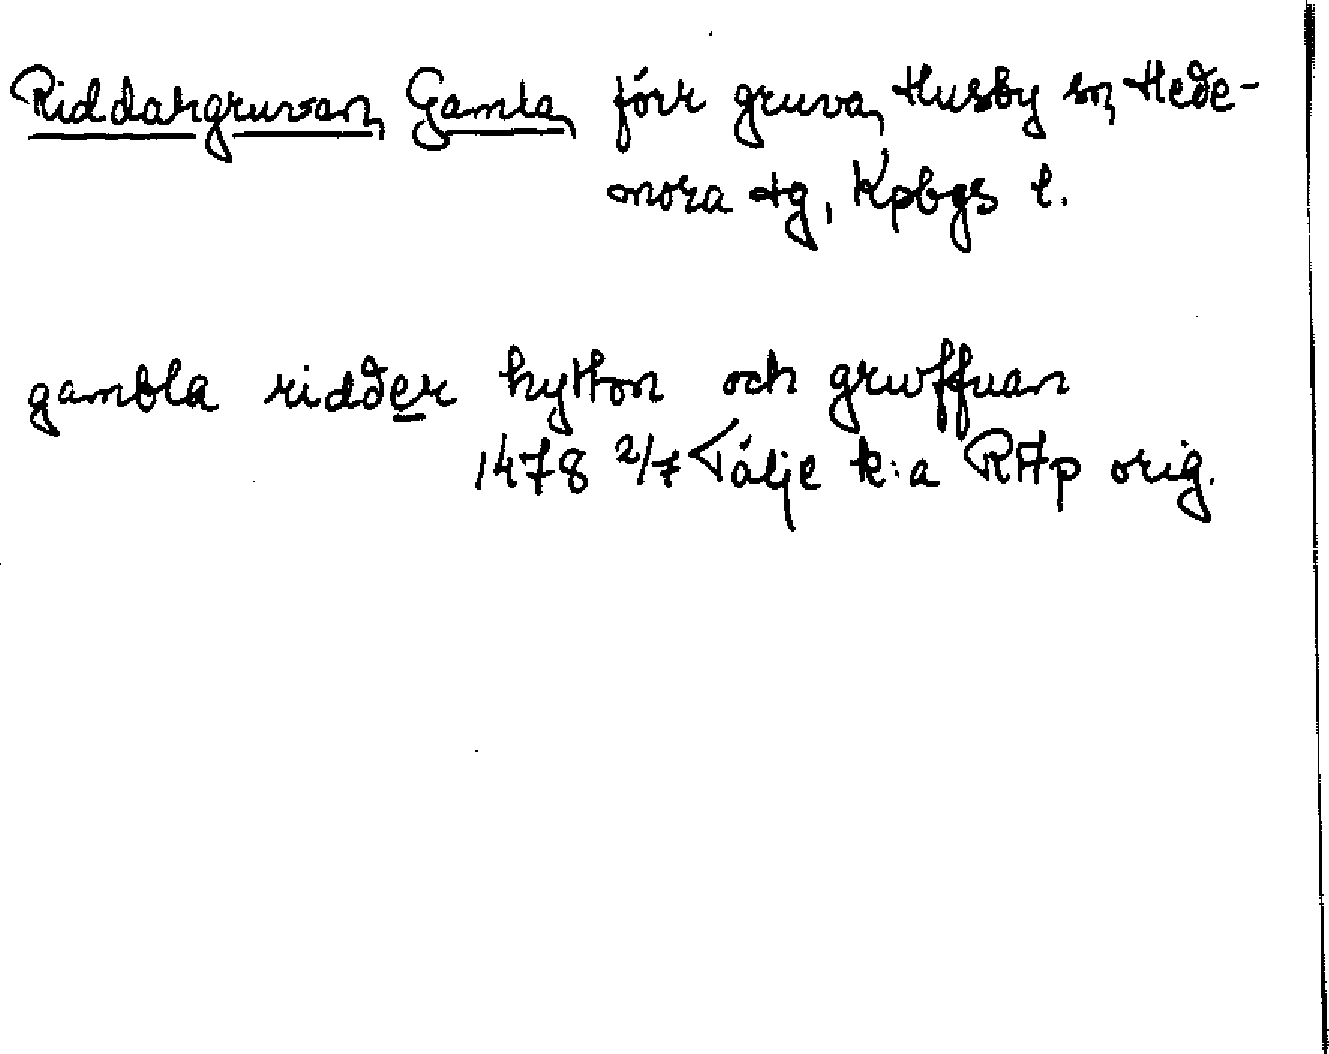 Riddargruvan, Gamla, förr gruva, Husby sn, Hede-
mora tg, Kpbgs l.
gambla ridder hytton och gruffuan
1478 2/7 Tälje k:a RAp orig.